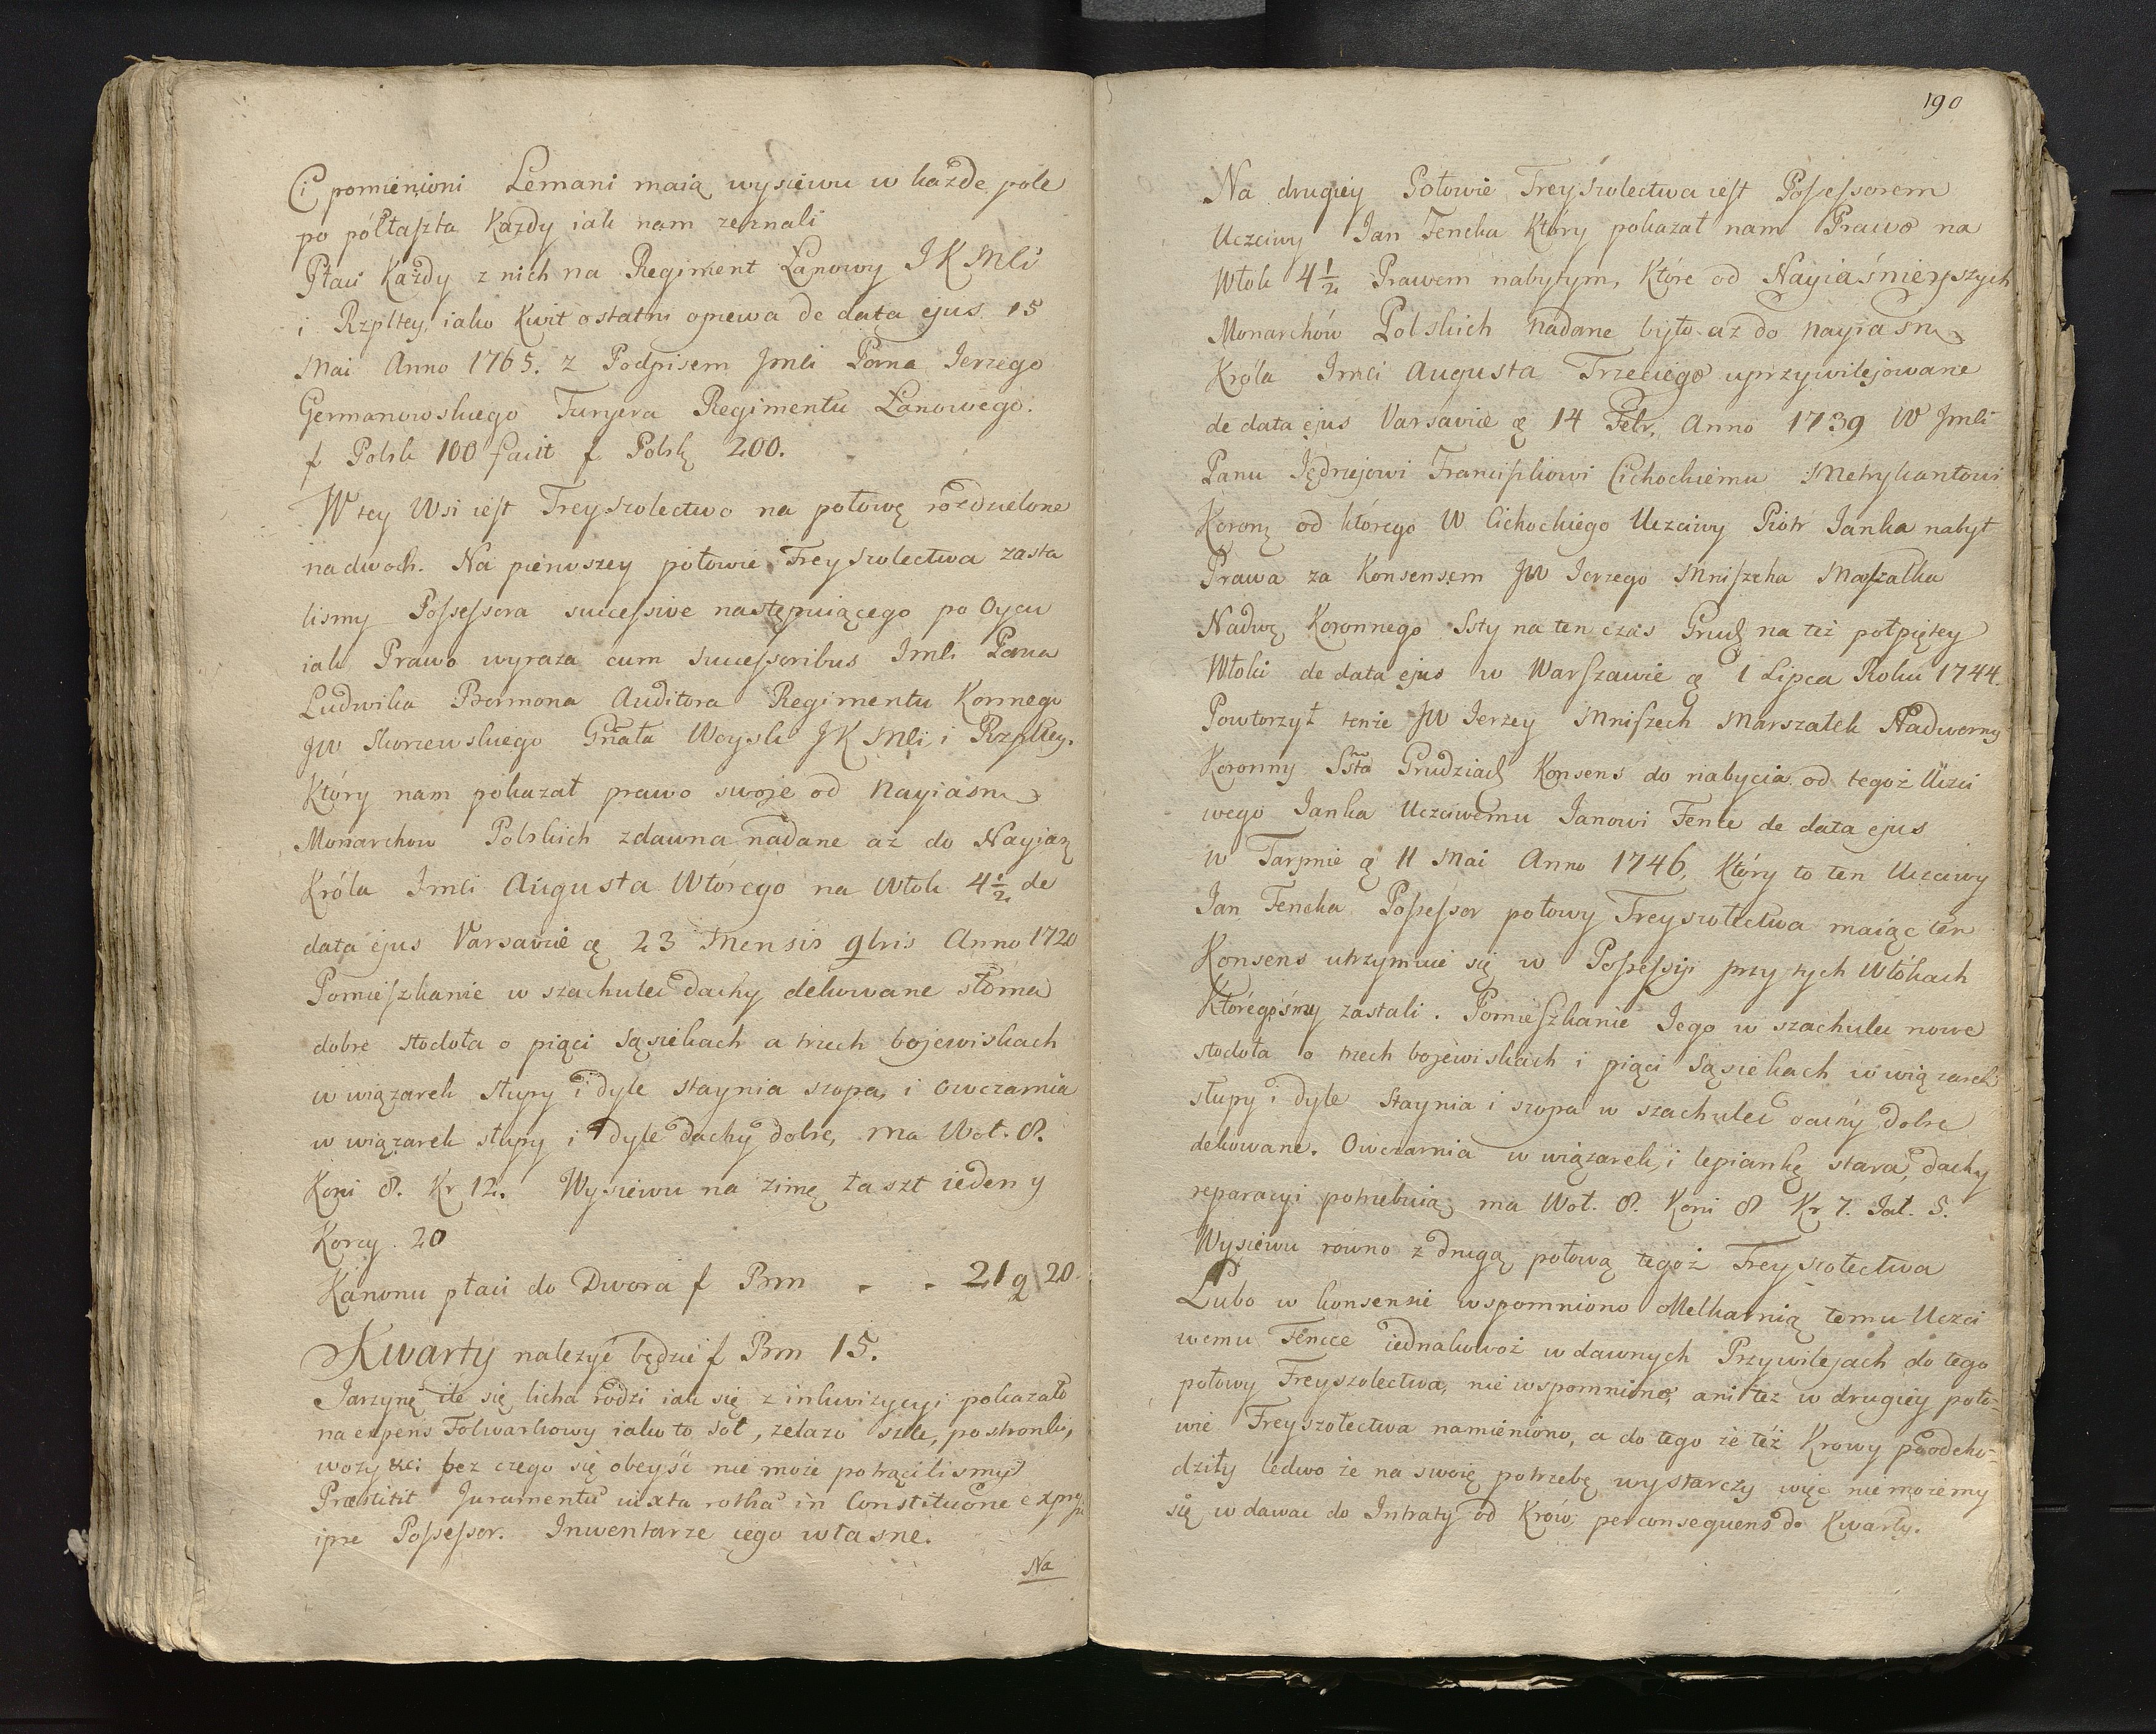 Ci pomienioni Lemani maią wysiewu w każde pole
po półłaszta Każdy iak nam zeznali
Płaci Każdy z nich na Regiment Łanowy JK Mci
i Rzpltey, iako Kwit ostatni opiewa de data ejus 15
Mai Anno 1765. z Podpisem Jmci Pana Jerzego
Germanowskiego Furyera Regimentu Łanowego.
f Polsk 100 facit f Polsk 200.
W tey Wsi iest Freyszolectwo na połowę rozdzielone
na dwoch. Na pierwszey połowie Freyszolectwa zasta
lismy Possessora successive następuiącego po Oycu
iak Prawo wyraża cum successoribus Jmci Pana
Ludwika Bermona Auditora Regimentu Konnego
JW Skorzewskiego Gnała Woysk JK Mci i Rzpltey.
Który nam pokazał prawo swoje od Nayiasn
Monarchow Polskich zdawna nadane aż do Nayjas
Króla Jmci Augusta Wtórego na Włok 4 1/2 de
data ejus Varsavie d 23 Mensis 9bris Anno 1720
Pomieszkanie w szachulec dachy dekowane słomą
dobre stodoła o piąci sąsiekach a trzech bojewiskach
w wiązarek słupy i dyle staynia szopa, i owczarnia
w wiązarek słupy i dyle dachy dobre, ma Woł. 8.
Koni 8. Kr 12. Wysiewu na zimę łaszt ieden y
Korcy. 20
Kanonu płaci do Dwora f Prm - - 21 g 20.
Kwarty należyć będzie f Prm 15.
Jarzynę ile się licha rodzi iak się z inkwizycyi pokazało
na expens Folwarkowy iako to sol, żelazo szle, postronki,
wozy bez czego się obeyść nie może potrąciliśmy
Præstitit Juramentū iuxta rotha in Constitucione expres
ipse Possessor. Inwentarze iego własne.
Na
190
Na drugiey Połowie Freyszolectwa iest Possessorem
Uczciwy Jan Fencka Który pokazał nam Prawo na
Włok 4 1/2 Prawem nabytym, Które od Nayiaśnieyszych
Monarchów Polskich nadane było aż do nayiasn
Króla Jmci Augusta Trzeciego uprzywilejowane
de data ejus Varsavie d 14 Febr. Anno 1739 W Jmci
Panu Jędrzejowi Franciszkowi Cichockiemu Metrykantowi
Koronz od którego W Cichockiego Uczciwy Piotr Janka nabył
Prawa za Konsensem JW Jerzego Mniszcha Marszałka
Nadwę Koronnego Ssty na ten czas Grudz na też połpiętey
Włoki de data ejus w Warszawie d 1 Lipca Roku 1744.
Powtorzył tenże JW Jerzy Mniszech Marszałek Nadworny
Koronny Ssta Grudziadz Konsens do nabycia od tegoż Uczci
wego Janka Uczciwemu Janowi Fence de data ejus
w Tarpnie d 11 Mai Anno 1746, Który to ten Uczciwy
Jan Fencka Possessor połowy Freyszolectwa maiąc ten
Konsens utrzymuie się w Possessyi przy tych Włókach
któregośmy zastali. Pomieszkanie Jego w szachulec nowe
stodoła o trzech bojewiskach i piąci sąsiekach w wiązarek
słupy i dyle Staynia i szopa w szachulec dobre
dekowane. Owczarnia w wiązarek, i lepiankę stara, dachy
reparacyi potrzebuią ma Woł. 8. Koni 8 Kr 7. Jał. 5.
Wysiewu rowno z drugą połową tegoż Freyszolectwa
Lubo w konsensie wspomniono Melkarnią temu Uczci
wemu Fencce iednakowoż w dawnych Przywilejach do tego
połowy Freyszolectwa, nie wspomniono, ani też w drugiey poło=
wie Freyszolectwa namieniono, a do tego że też Krowy poodcho=
dziły ledwo że na swoię potrzebę wystarczy więc nie możemy
się wdawac do Intraty od Krów, per consequens do Kwarty.